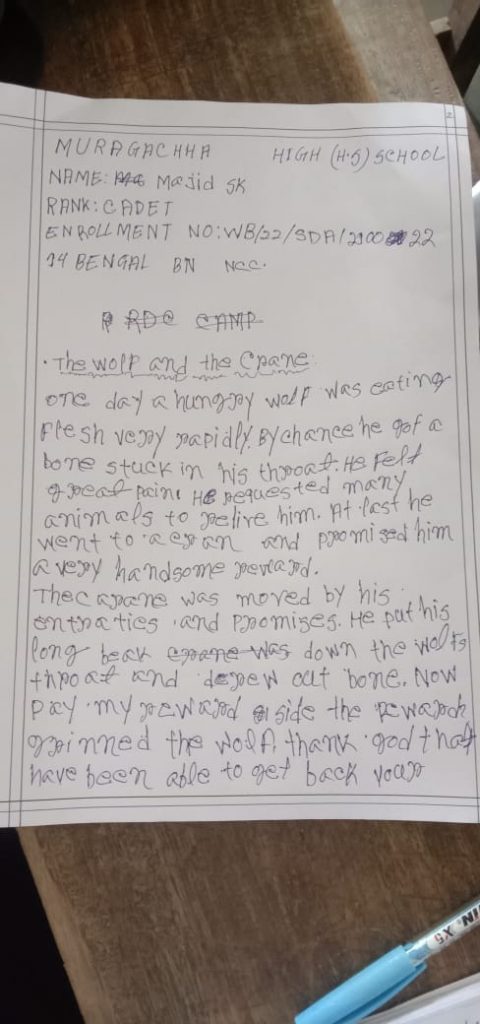 2
MURAGACHHA HIGH (H.S) SCHOOL
NAME: Majid SK
RANK: CADET
ENROLLMENT NO: WB/22/SDA/2100 22
14 BENGAL BN NCC.
RDC CAMP
. The wolf and the Crane:
one day a hungry wolf was eating
flesh very rapidly. By chance he got a
bone stuck in his throat. He felt
great pain. He requested many
animals to relive him. At last he
went to a cran and promised him
a very handsome reward.
The carane was moved by his
entraties and Promises. He put his
long beak crane was down the wolfs
throat and derew out bone. Now
pay my reward side the rewardr
grinned the wolf. thank god that
have been able to get back your